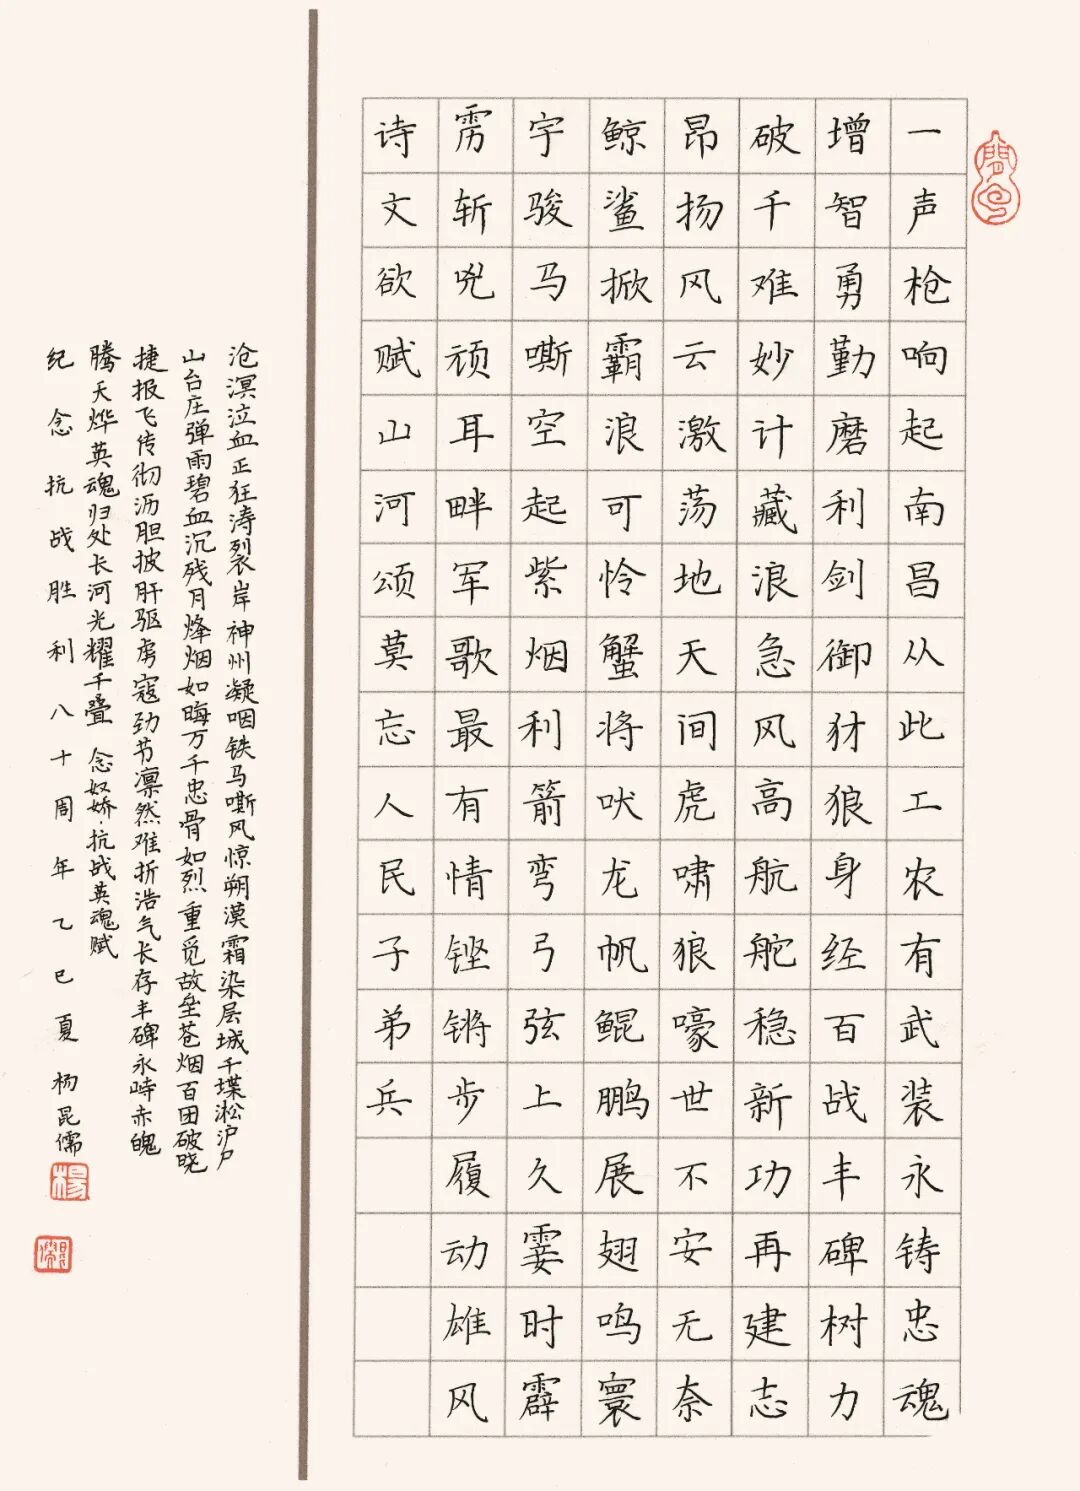 一声枪响起南昌从此工农有武装永铸忠魂
增智勇勤磨利剑御豺狼身经百战丰碑树力
破千难妙计藏浪急风高航舵稳新功再建志
昂扬风云激荡地天间虎啸狼嚎世不安无奈
鲸鲨掀霸浪可怜蟹将吠龙帆鲲鹏展翅鸣寰
宇骏马嘶空起紫烟利箭弯弓弦上久霎时霹
雳斩兇顽耳畔军歌最有情铿锵步履动雄风
诗文欲赋山河颂莫忘人民子弟兵
沧溟泣血正狂涛裂岸神州凝咽铁马嘶风惊朔漠霜染层城千堞淞沪
山台庄弹雨碧血沉残月烽烟如晦万千忠骨如烈重觅故垒苍烟百团破晓
捷报飞传彻沥胆披肝驱虏寇劲节凛然难折浩气长存丰碑永峙赤魄
腾天烨英魂归处长河光耀千叠 念奴娇·抗战英魂赋
纪念抗战胜利八十周年乙巳夏杨昆儒